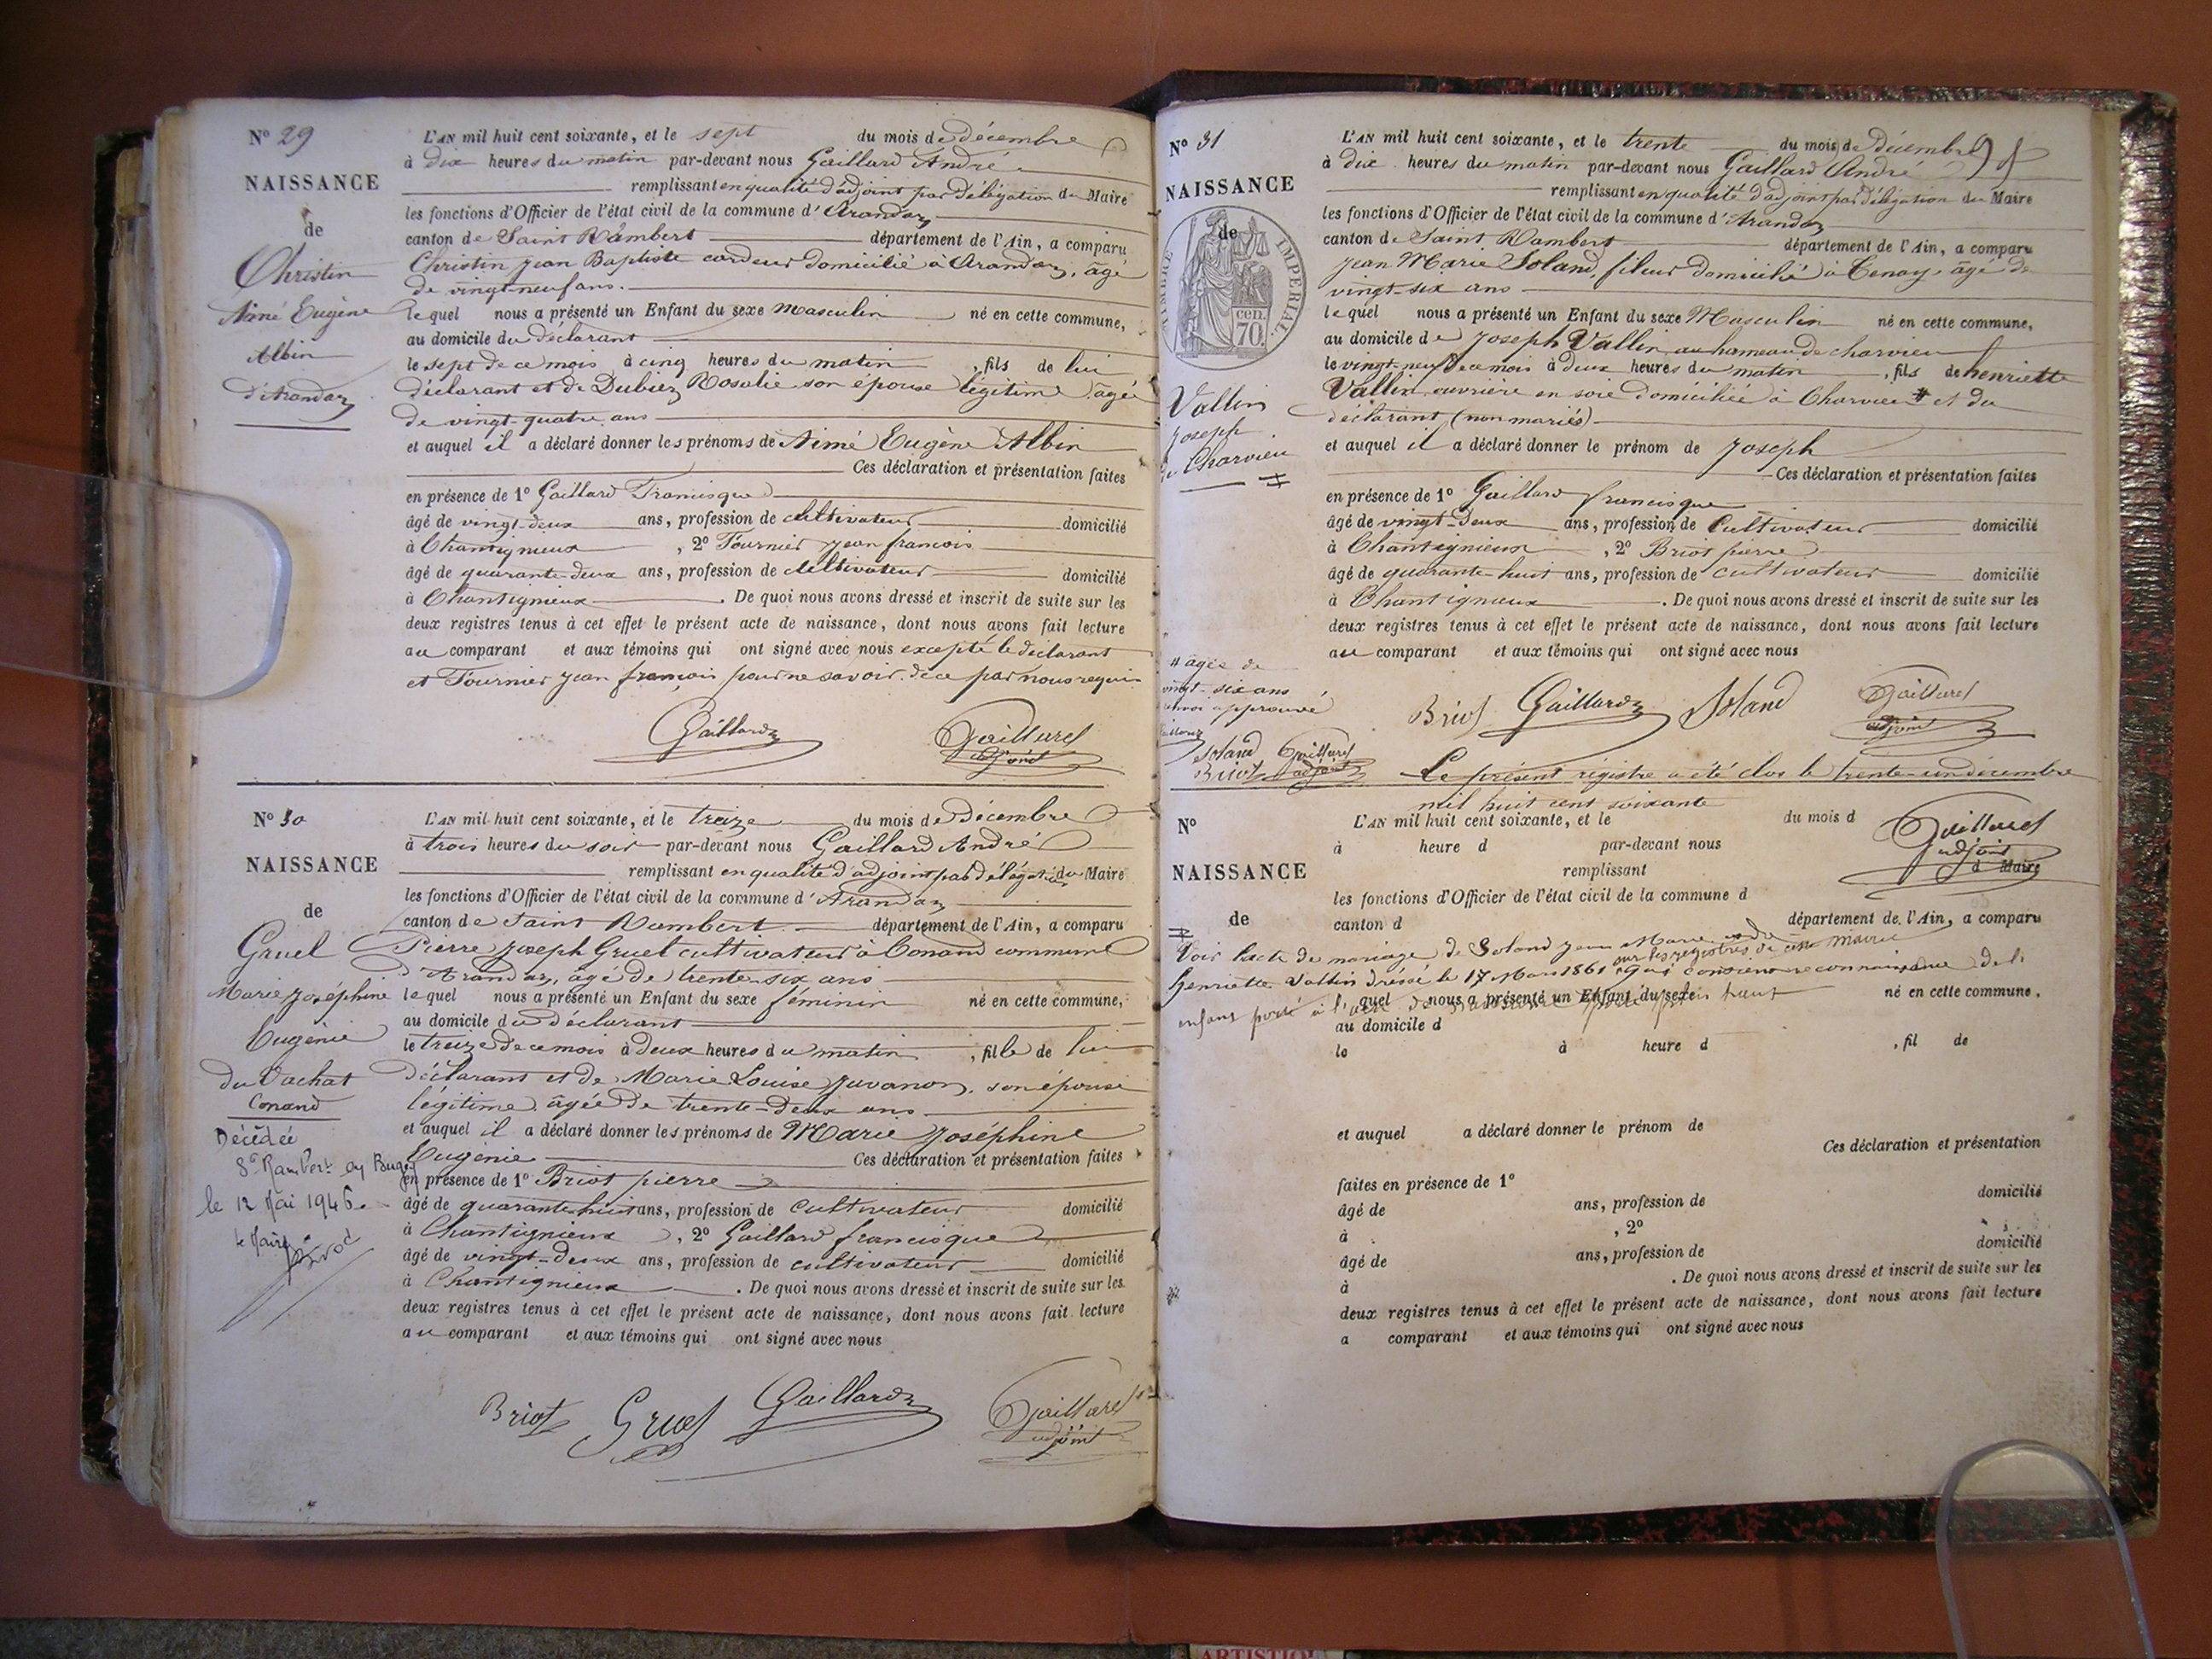 N° 29
NAISSANCE
de
Christin
Aimé Eugène
Albin
d'Arandaz
L'AN mil huit cent soixante, et le sept du mois de décembre
à dix heures du matin par-devant nous Gaillard André
remplissant en qualité d'adjoint par délégation du Maire
les fonctions d'Officier de l'état civil de la commune d'Arandaz
canton de Saint Rambert département de l'Ain, a comparu
Christin Jean Baptiste cardeur domicilié à Arandaz, âgé
de vingt-neuf ans.
lequel nous a présenté un Enfant du sexe Masculin né en cette commune,
au domicile du déclarant
le sept de ce mois à cinq heures du matin, fils de lui
déclarant et de Dubiez Rosalie son épouse légitime âgée
de vingt-quatre ans
et auquel il a déclaré donner les prénoms de Aimé Eugène Albin
Ces déclaration et présentation faites
en présence de 1° Gaillard Francisque
âgé de vingt-deux ans, profession de cultivateur domicilié
à Chantignieux, 2° Fournier jean francois
âgé de quarante-deux ans, profession de cultivateur domicilié
à Chantignieux. De quoi nous avons dressé et inscrit de suite sur les
deux registres tenus à cet effet le présent acte de naissance, dont nous avons fait lecture
au comparant et aux témoins qui ont signé avec nous excepté le déclarant
et Fournier jean françois pour ne savoir de ce par nous requis
Gaillard Gaillard
adjoint
N° 30
NAISSANCE
de
Gruel
Marie Joséphine
Eugénie
du Vachat
Conand
Décédée
St Rambert en Bugey
le 12 Mai 1946.
le Maire
L'AN mil huit cent soixante, et le treize du mois de décembre
à trois heures du soir par-devant nous Gaillard André
remplissant en qualité d'adjoint par délégation du Maire
les fonctions d'Officier de l'état civil de la commune d'Arandaz
canton de Saint Rambert département de l'Ain, a comparu
Pierre Joseph Gruel cultivateur à Conand commune
d'Arandaz, âgé de trente-six ans
lequel nous a présenté un Enfant du sexe féminin né en cette commune,
au domicile du déclarant
le treize de ce mois à deux heures du matin, fille de lui
déclarant et de Marie Louise Juvanon, son épouse
légitime âgée de trente-deux ans
et auquel il a déclaré donner les prénoms de Marie Joséphine
Eugénie Ces déclaration et présentation faites
en présence de 1° Briot pierre
âgé de quarante-huit ans, profession de cultivateur domicilié
à Chantignieux, 2° Gaillard francisque
âgé de vingt-deux ans, profession de cultivateur domicilié
à Chantignieux. De quoi nous avons dressé et inscrit de suite sur les
deux registres tenus à cet effet le présent acte de naissance, dont nous avons fait lecture
au comparant et aux témoins qui ont signé avec nous
Briot Gruel Gaillard Gaillard
adjoint
N° 31
NAISSANCE
de
TIMBRE IMPERIAL
CEN. 70.
Vallin
Joseph
de Charvieu
#
L'AN mil huit cent soixante, et le trente du mois de décembre
à dix heures du matin par-devant nous Gaillard André
remplissant en qualité d'adjoint par délégation du Maire
les fonctions d'Officier de l'état civil de la commune d'Arandaz
canton de Saint Rambert département de l'Ain, a comparu
Jean Marie Soland, fileur domicilié à Tenay, âgé de
vingt-six ans
lequel nous a présenté un Enfant du sexe Masculin né en cette commune,
au domicile de Joseph Vallin au hameau de charvieu
le vingt-neuf de ce mois à deux heures du matin, fils de henriette
Vallin, ouvrière en soie domiciliée à Charvieu # et du
déclarant (non mariés)
et auquel il a déclaré donner le prénom de Joseph
Ces déclaration et présentation faites
en présence de 1° Gaillard francisque
âgé de vingt-deux ans, profession de Cultivateur domicilié
à Chantignieux, 2° Briot pierre
âgé de quarante-huit ans, profession de cultivateur domicilié
à Chantignieux. De quoi nous avons dressé et inscrit de suite sur les
deux registres tenus à cet effet le présent acte de naissance, dont nous avons fait lecture
au comparant et aux témoins qui ont signé avec nous
# agée de
vingt-six ans
renvoi approuvé
Soland Gaillard
Briot adjoint
Briot Gaillard Soland Gaillard
adjoint
Le présent régistre a été clos le trente-un décembre
mil huit cent soixante
Gaillard
adjoint
N°
NAISSANCE
de
L'AN mil huit cent soixante, et le du mois d
à heure d par-devant nous
remplissant d Maire
les fonctions d'Officier de l'état civil de la commune d
canton d département de l'Ain, a comparu
#
Voir l'acte de mariage de Soland Jean Marie et de
Henriette Vallin dréssé le 17 Mars 1861 sur les registres de cette mairie qui consacre reconnaissance de l'
enfant porté à l'acte de naissance porté plus haut
l quel nous a présenté un Enfant du sexe né en cette commune,
au domicile d
le à heure d , fil de
et auquel a déclaré donner le prénom de
Ces déclaration et présentation
faites en présence de 1°
âgé de ans, profession de domicilié
à , 2°
âgé de ans, profession de domicilié
à . De quoi nous avons dressé et inscrit de suite sur les
deux registres tenus à cet effet le présent acte de naissance, dont nous avons fait lecture
a comparant et aux témoins qui ont signé avec nous